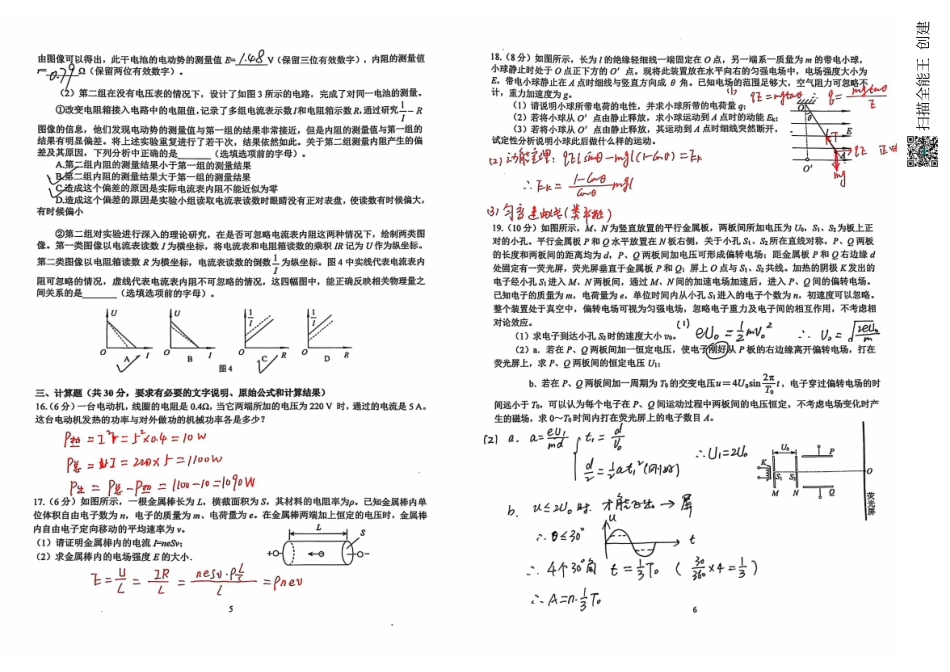 由图像可以得出，此干电池的电动势的测量值 E= 1.48 V（保留三位有效数字），内阻的测量值
r= 0.79 Ω（保留两位有效数字）。
（2）第二组在没有电压表的情况下，设计了如图 3 所示的电路，完成了对同一电池的测量。
①改变电阻箱接入电路中的电阻值,记录了多组电流表示数 I 和电阻箱示数 R,通过研究 1/I － R
图像的信息，他们发现电动势的测量值与第一组的结果非常接近，但是内阻的测量值与第一组的
结果有明显偏差。将上述实验重复进行了若干次，结果依然如此。关于第二组测量内阻产生的偏
差及其原因，下列分析中正确的是______（选填选项前的字母）。
A.第二组内阻的测量结果小于第一组的测量结果
B.第二组内阻的测量结果大于第一组的测量结果
C.造成这个偏差的原因是实际电流表内阻不能近似为零
D.造成这个偏差的原因是实验小组读取电流表读数时眼睛没有正对表盘，使读数有时候偏大，
有时候偏小
②第二组对实验进行深入的理论研究，在是否可忽略电流表内阻这两种情况下，绘制两类图
像。第一类图像以电流表读数 I 为横坐标，将电流表和电阻箱读数的乘积 IR 记为 U 作为纵坐标。
第二类图像以电阻箱读数 R 为横坐标，电流表读数的倒数 1/I 为纵坐标。图 4 中实线代表电流表内
阻可忽略的情况，虚线代表电流表内阻不可忽略的情况，这四幅图中，能正确反映相关物理量之
间关系的是______（选填选项前的字母）。
U U 1/I 1/I
O A I O B I O C R O D R
图 4
三、计算题（共 30 分，要求有必要的文字说明、原始公式和计算结果）
16.（6 分）一台电动机，线圈的电阻是 0.4Ω，当它两端所加的电压为 220 V 时，通过的电流是 5 A。
这台电动机发热的功率与对外做功的机械功率各是多少？
P热 = I²r = 5²×0.4 = 10W
P总 = UI = 220×5 = 1100W
P出 = P总 - P热 = 1100-10 = 1090W
17.（6 分）如图所示，一根金属棒长为 L，横截面积为 S，其材料的电阻率为ρ。已知金属棒内单
位体积自由电子数为 n，电子的质量为 m、电荷量为 e。在金属棒两端加上恒定的电压时，金属棒
内自由电子定向移动的平均速率为 v。
（1）请证明金属棒内的电流 I=neSv；
（2）求金属棒内的电场强度 E 的大小.
L S
+ -
E = U/L = IR/L = nesv·ρL/S / L = ρnev
5
18.（8 分）如图所示，长为 l 的绝缘轻细线一端固定在 O 点，另一端系一质量为 m 的带电小球，
小球静止时处于 O 点正下方的 O′ 点。现将此装置放在水平向右的匀强电场中，电场强度大小为
E，带电小球静止在 A 点时细线与竖直方向成 θ 角。已知电场的范围足够大，空气阻力可忽略不
计，重力加速度为 g。
（1）请说明小球所带电荷的电性，并求小球所带的电荷量 q；
（2）若将小球从 O′ 点由静止释放，求小球运动到 A 点时的动能 Ek；
（3）若将小球从 O′ 点由静止释放，其运动到 A 点时细线突然断开，
试定性分析说明小球此后做什么样的运动。
(1) qE = mgtanθ q = mgtanθ/E
O θ T E A qE 正电
O′ mg
(2) 动能定理： qElsinθ - mgl(1-cosθ) = Ek
∴ Ek = 1-cosθ/cosθ mgl
(3) 匀变速曲线(类平抛)
19.（10 分）如图所示，M、N 为竖直放置的平行金属板，两板间所加电压为 U₀，S₁、S₂为板上正
对的小孔。平行金属板 P 和 Q 水平放置在 N 板右侧，关于小孔 S₁、S₂所在直线对称，P、Q 两板
的长度和两板间的距离均为 d，P、Q 两板间加电压可形成偏转电场；距金属板 P 和 Q 右边缘 d
处固定有一荧光屏，荧光屏垂直于金属板 P 和 Q；屏上 O 点与 S₁、S₂共线。加热的阴极 K 发出的
电子经小孔 S₁进入 M、N 两板间，通过 M、N 间的加速电场加速后，进入 P、Q 间的偏转电场。
已知电子的质量为 m，电荷量为 e，单位时间内从小孔 S₁进入的电子个数为 n，初速度可以忽略。
整个装置处于真空中，偏转电场可视为匀强电场，忽略电子重力及电子间的相互作用，不考虑相
对论效应。
（1）求电子到达小孔 S₂时的速度大小 v₀。
(1) eU₀ = ½mv₀² ∴ v₀ = √2eU₀/m
（2）a．若在 P、Q 两板间加一恒定电压，使电子刚好从 P 板的右边缘离开偏转电场，打在
荧光屏上，求 P、Q 两板间的恒定电压 U₁；
b．若在 P、Q 两板间加一周期为 T₀ 的交变电压 u＝4U₀sin 2π/T₀ t，电子穿过偏转电场的时
间远小于 T₀，可以认为每个电子在 P、Q 间运动过程中两板间的电压恒定，不考虑电场变化时产
生的磁场，求 0～T₀ 时间内打在荧光屏上的电子数目 A。
(2) a. a = eU₁/md t₁ = d/v₀
d/2 = ½at₁² (刚好) ∴ U₁ = 2U₀
U₀ P K S₁ S₂ O
M N Q 荧光屏
b. u ≤ 2U₀ 时. 才能飞出 → 屏
∴ θ ≤ 30° u t
∴ 4个30°角 t = ⅓T₀ ( 30/360 ×4 = ⅓ )
∴ A = n·⅓T₀
6
扫描全能王 创建